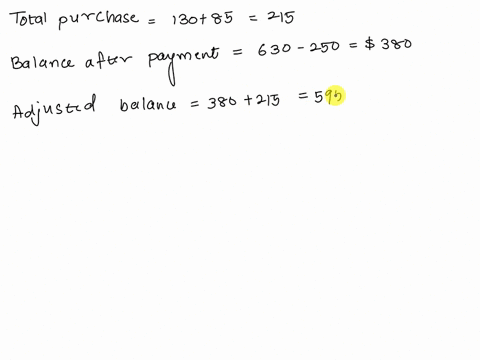 Total purchase = 130+85 = 215
Balance after payment = 630 - 250 = $ 380
Adjusted balance = 380 + 215 = 595